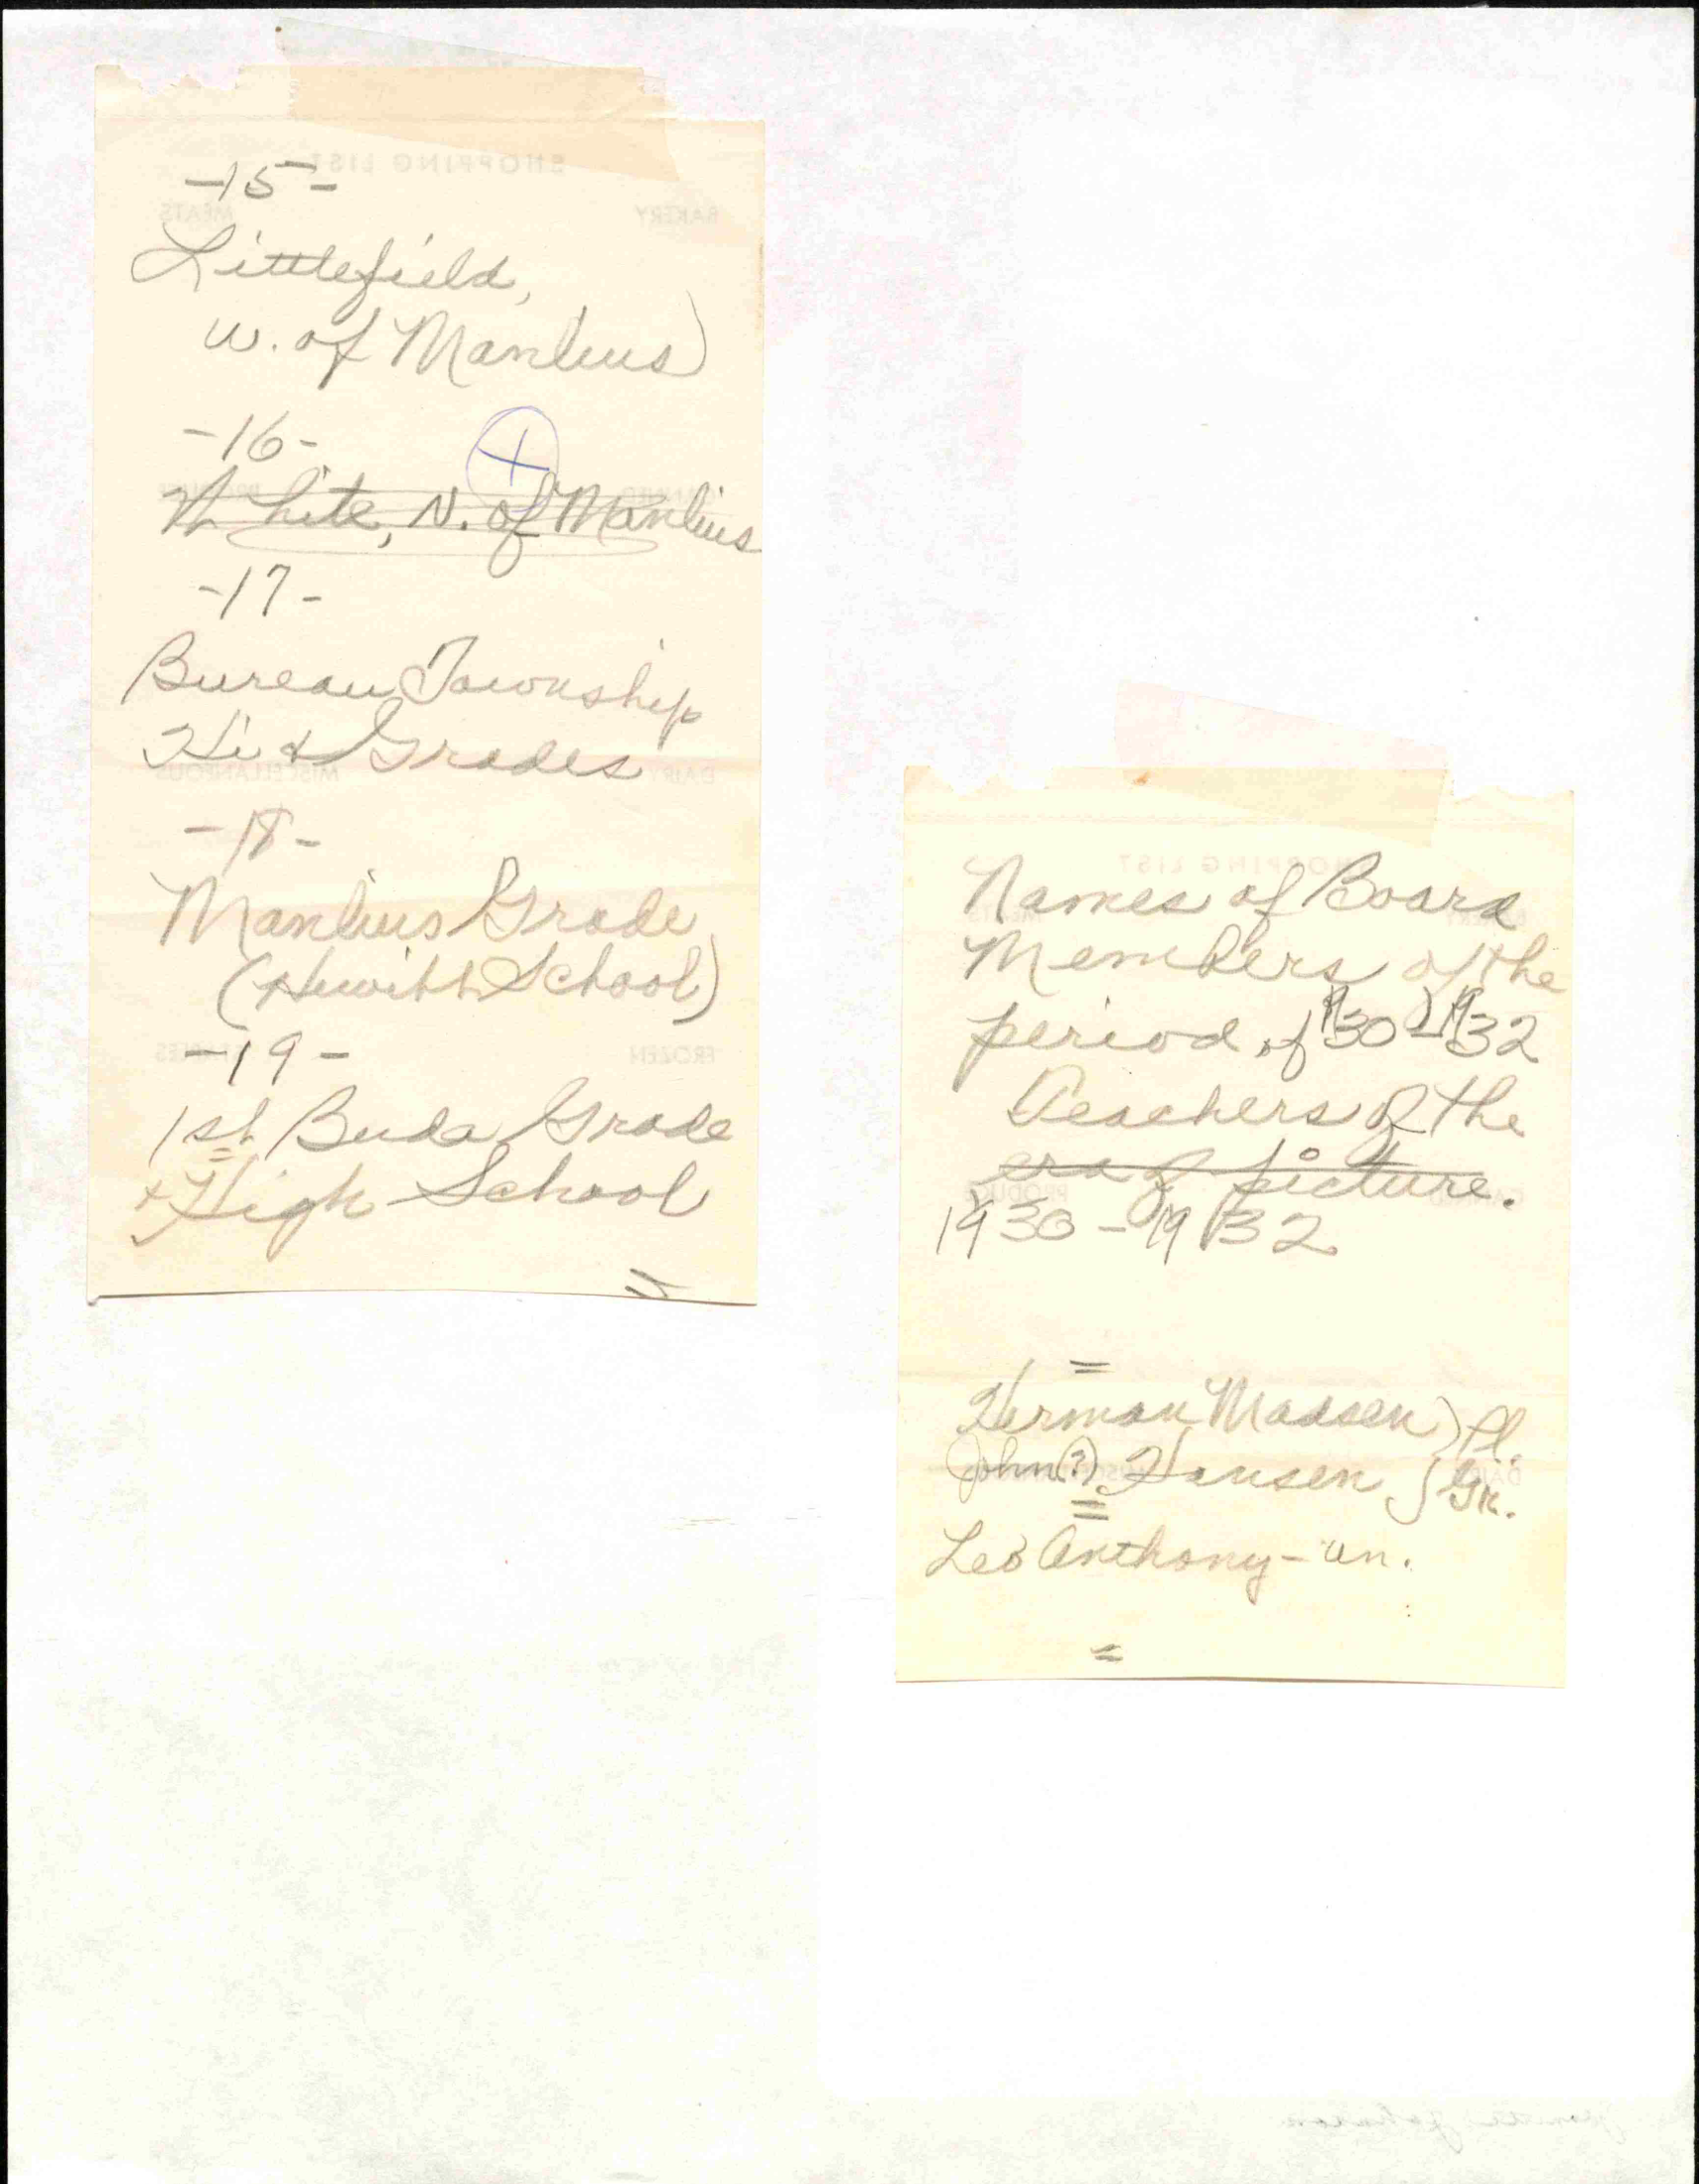 -15-
Littlefield,
W. of Manlius)
-16-
White, N. of Manlius
-17-
Bureau Township
Hi & Grades
-18-
Manlius Grade
(Hewitt School)
-19-
1st Buda Grade
+ High School
Names of Board
Members of the
period of 1930-1932
Teachers of the
era of picture.
1930-1932
Herman Madsen) Pl.
John(?) Hansen } Gr.
Leo Anthony-un.
SHOPPING LIST
BAKERY MEATS
DAIRY MISCELLANEOUS
FROZEN
SHOPPING LIST
PRODUCE